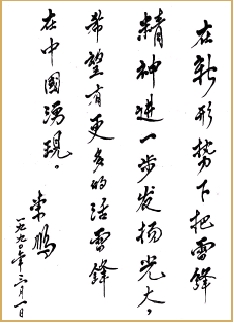 在新形势下把雷锋
精神进一步发扬光大，
希望有更多的活雷锋
在中國湧現。
荣鹏
一九九〇年三月一日